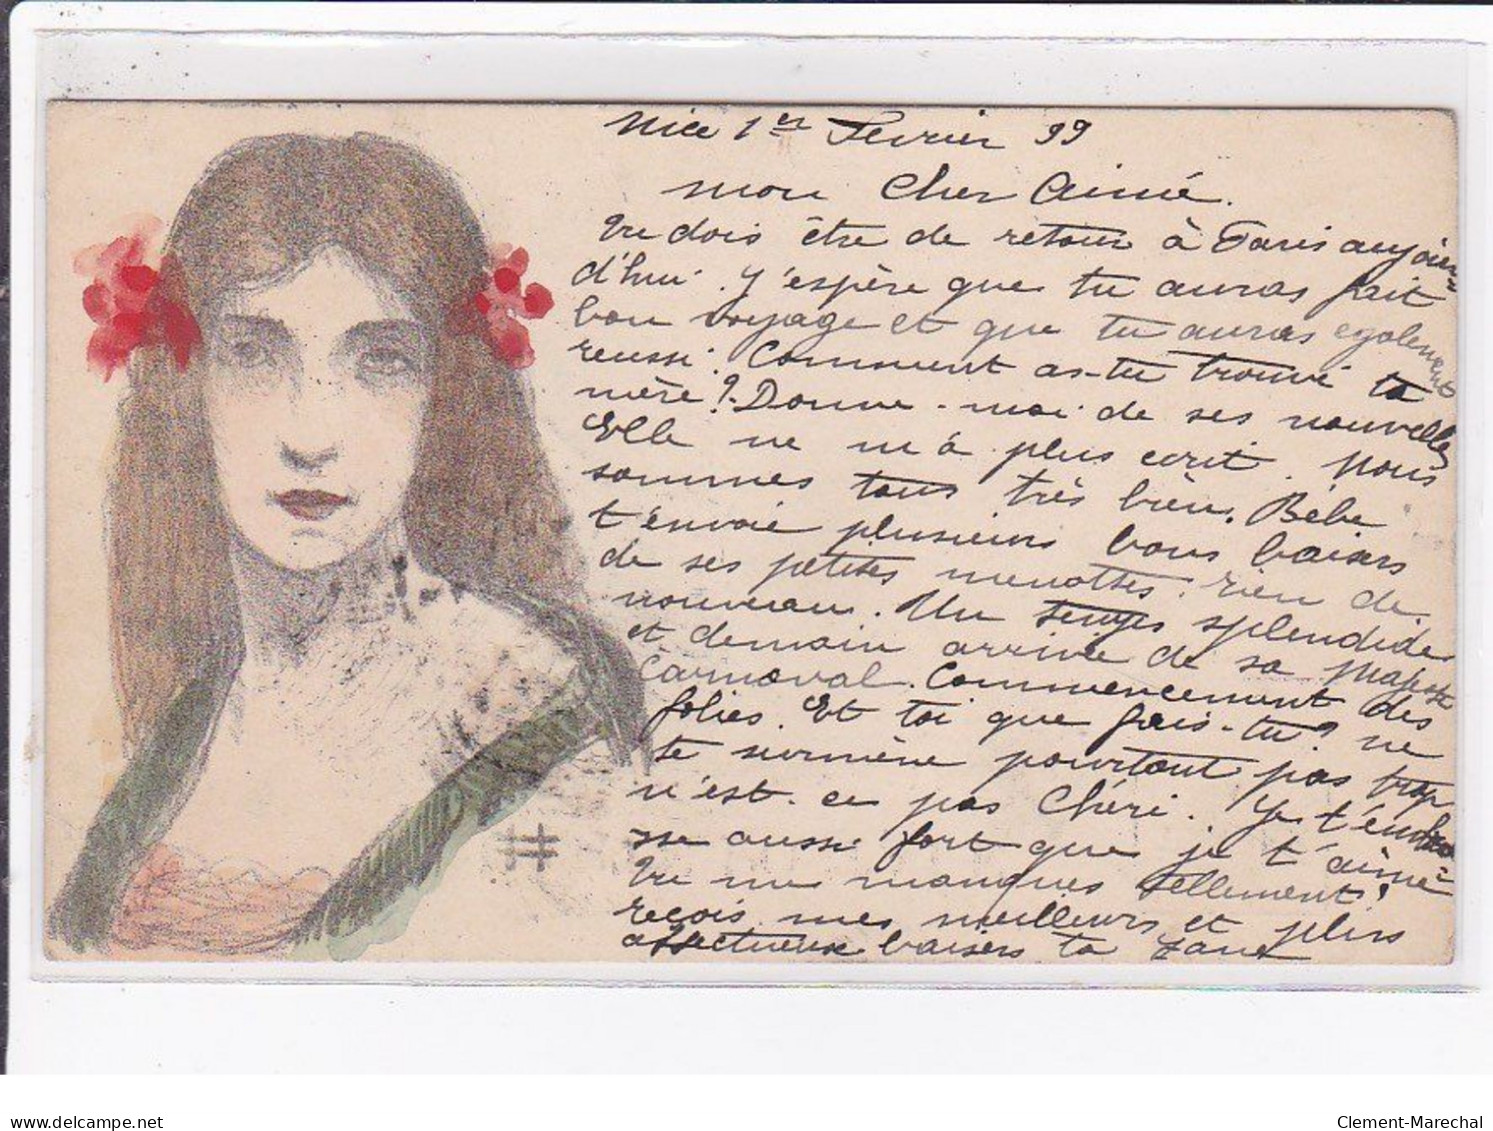 Nice 1er Fevrier 99
mon Cher Aimé.
Tu dois être de retour à Paris aujour
d'hui. J'espère que tu auras fait
bon voyage et que tu auras egalement
reussi. Comment as-tu trouvé ta
mère? Donne-moi de ses nouvelles
Elle ne m'a plus ecrit. Nous
sommes tous très bien. Bébé
t'envoie plusieurs bons baisers
de ses petites menottes. rien de
nouveau. Un temps splendide
et demain arrivée de sa Majesté
Carnaval. Commencement des
folies. Et toi que fais-tu? ne
te surmène pourtant pas trop
n'est-ce pas Chéri. Je t'embra
sse aussi fort que je t'aime
Tu me manques tellement!
reçois mes meilleurs et plus
affectueux baisers ta
delcampe.net
Clement-Marechal